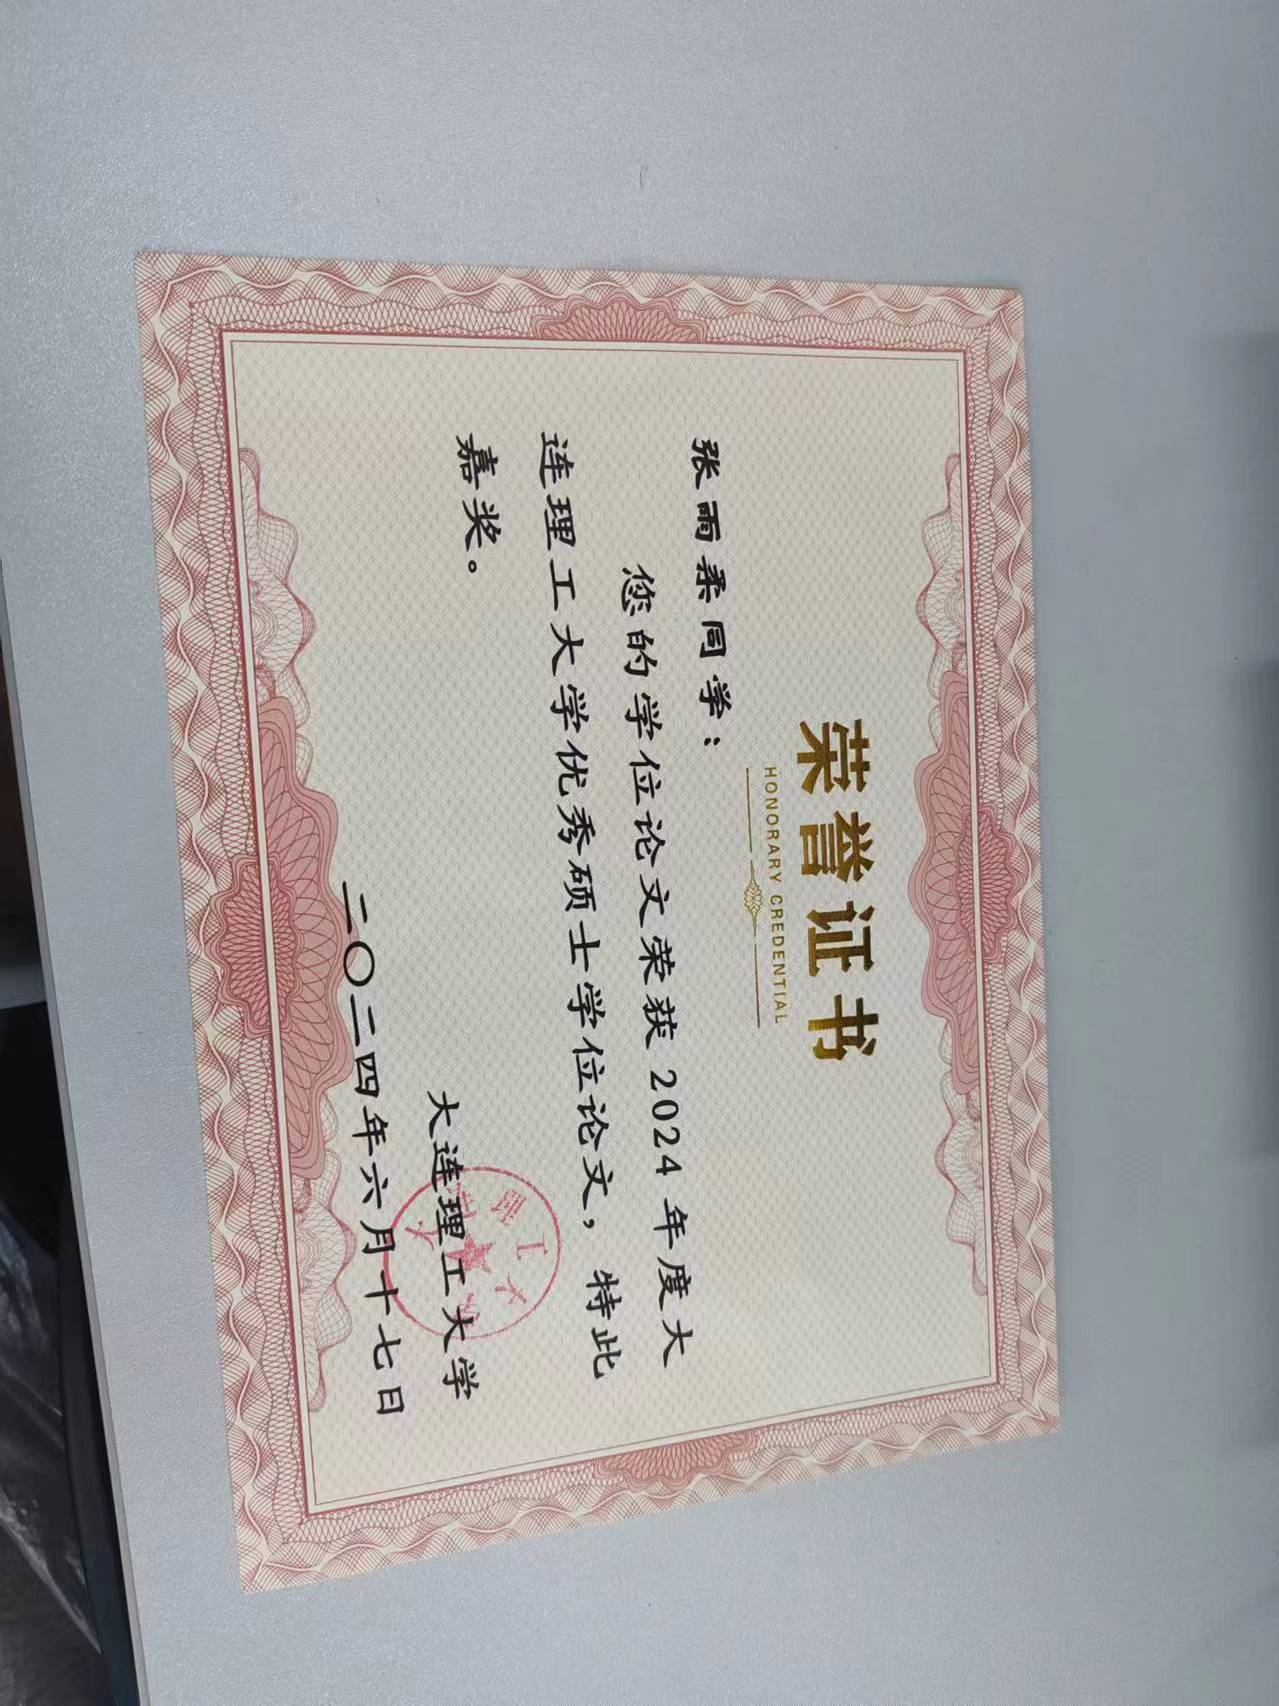 荣誉证书
HONORARY CREDENTIAL
张雨柔同学：
您的学位论文荣获2024年度大
连理工大学优秀硕士学位论文，特此
嘉奖。
大连理工大学
二〇二四年六月十七日